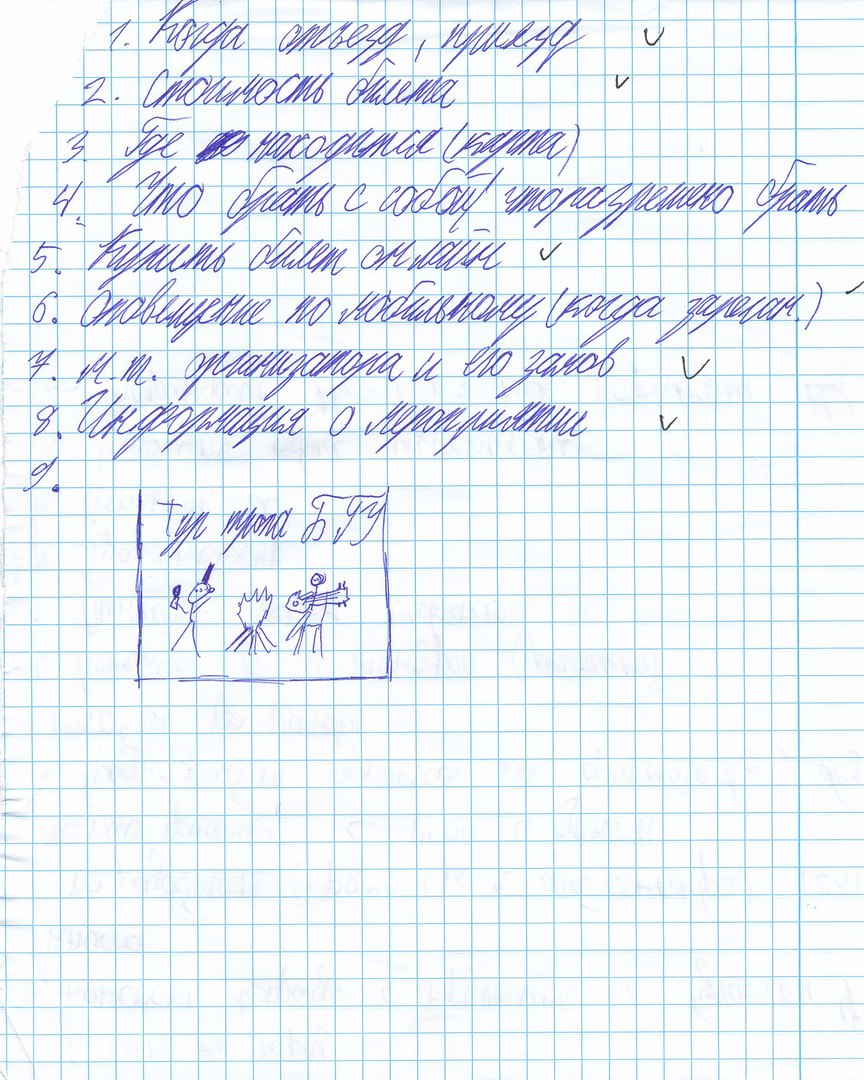 1. Когда отъезд, приезд
2. Стоимость билета
3. Где находится (карта)
4. Что брать с собой, что разрешено брать
5. Купить билет онлайн
6. Оповещение по мобильному (когда зареган.)
7. м.т. организатора и его замов
8. Информация о мероприятие
9.
Тур тропа БГУ